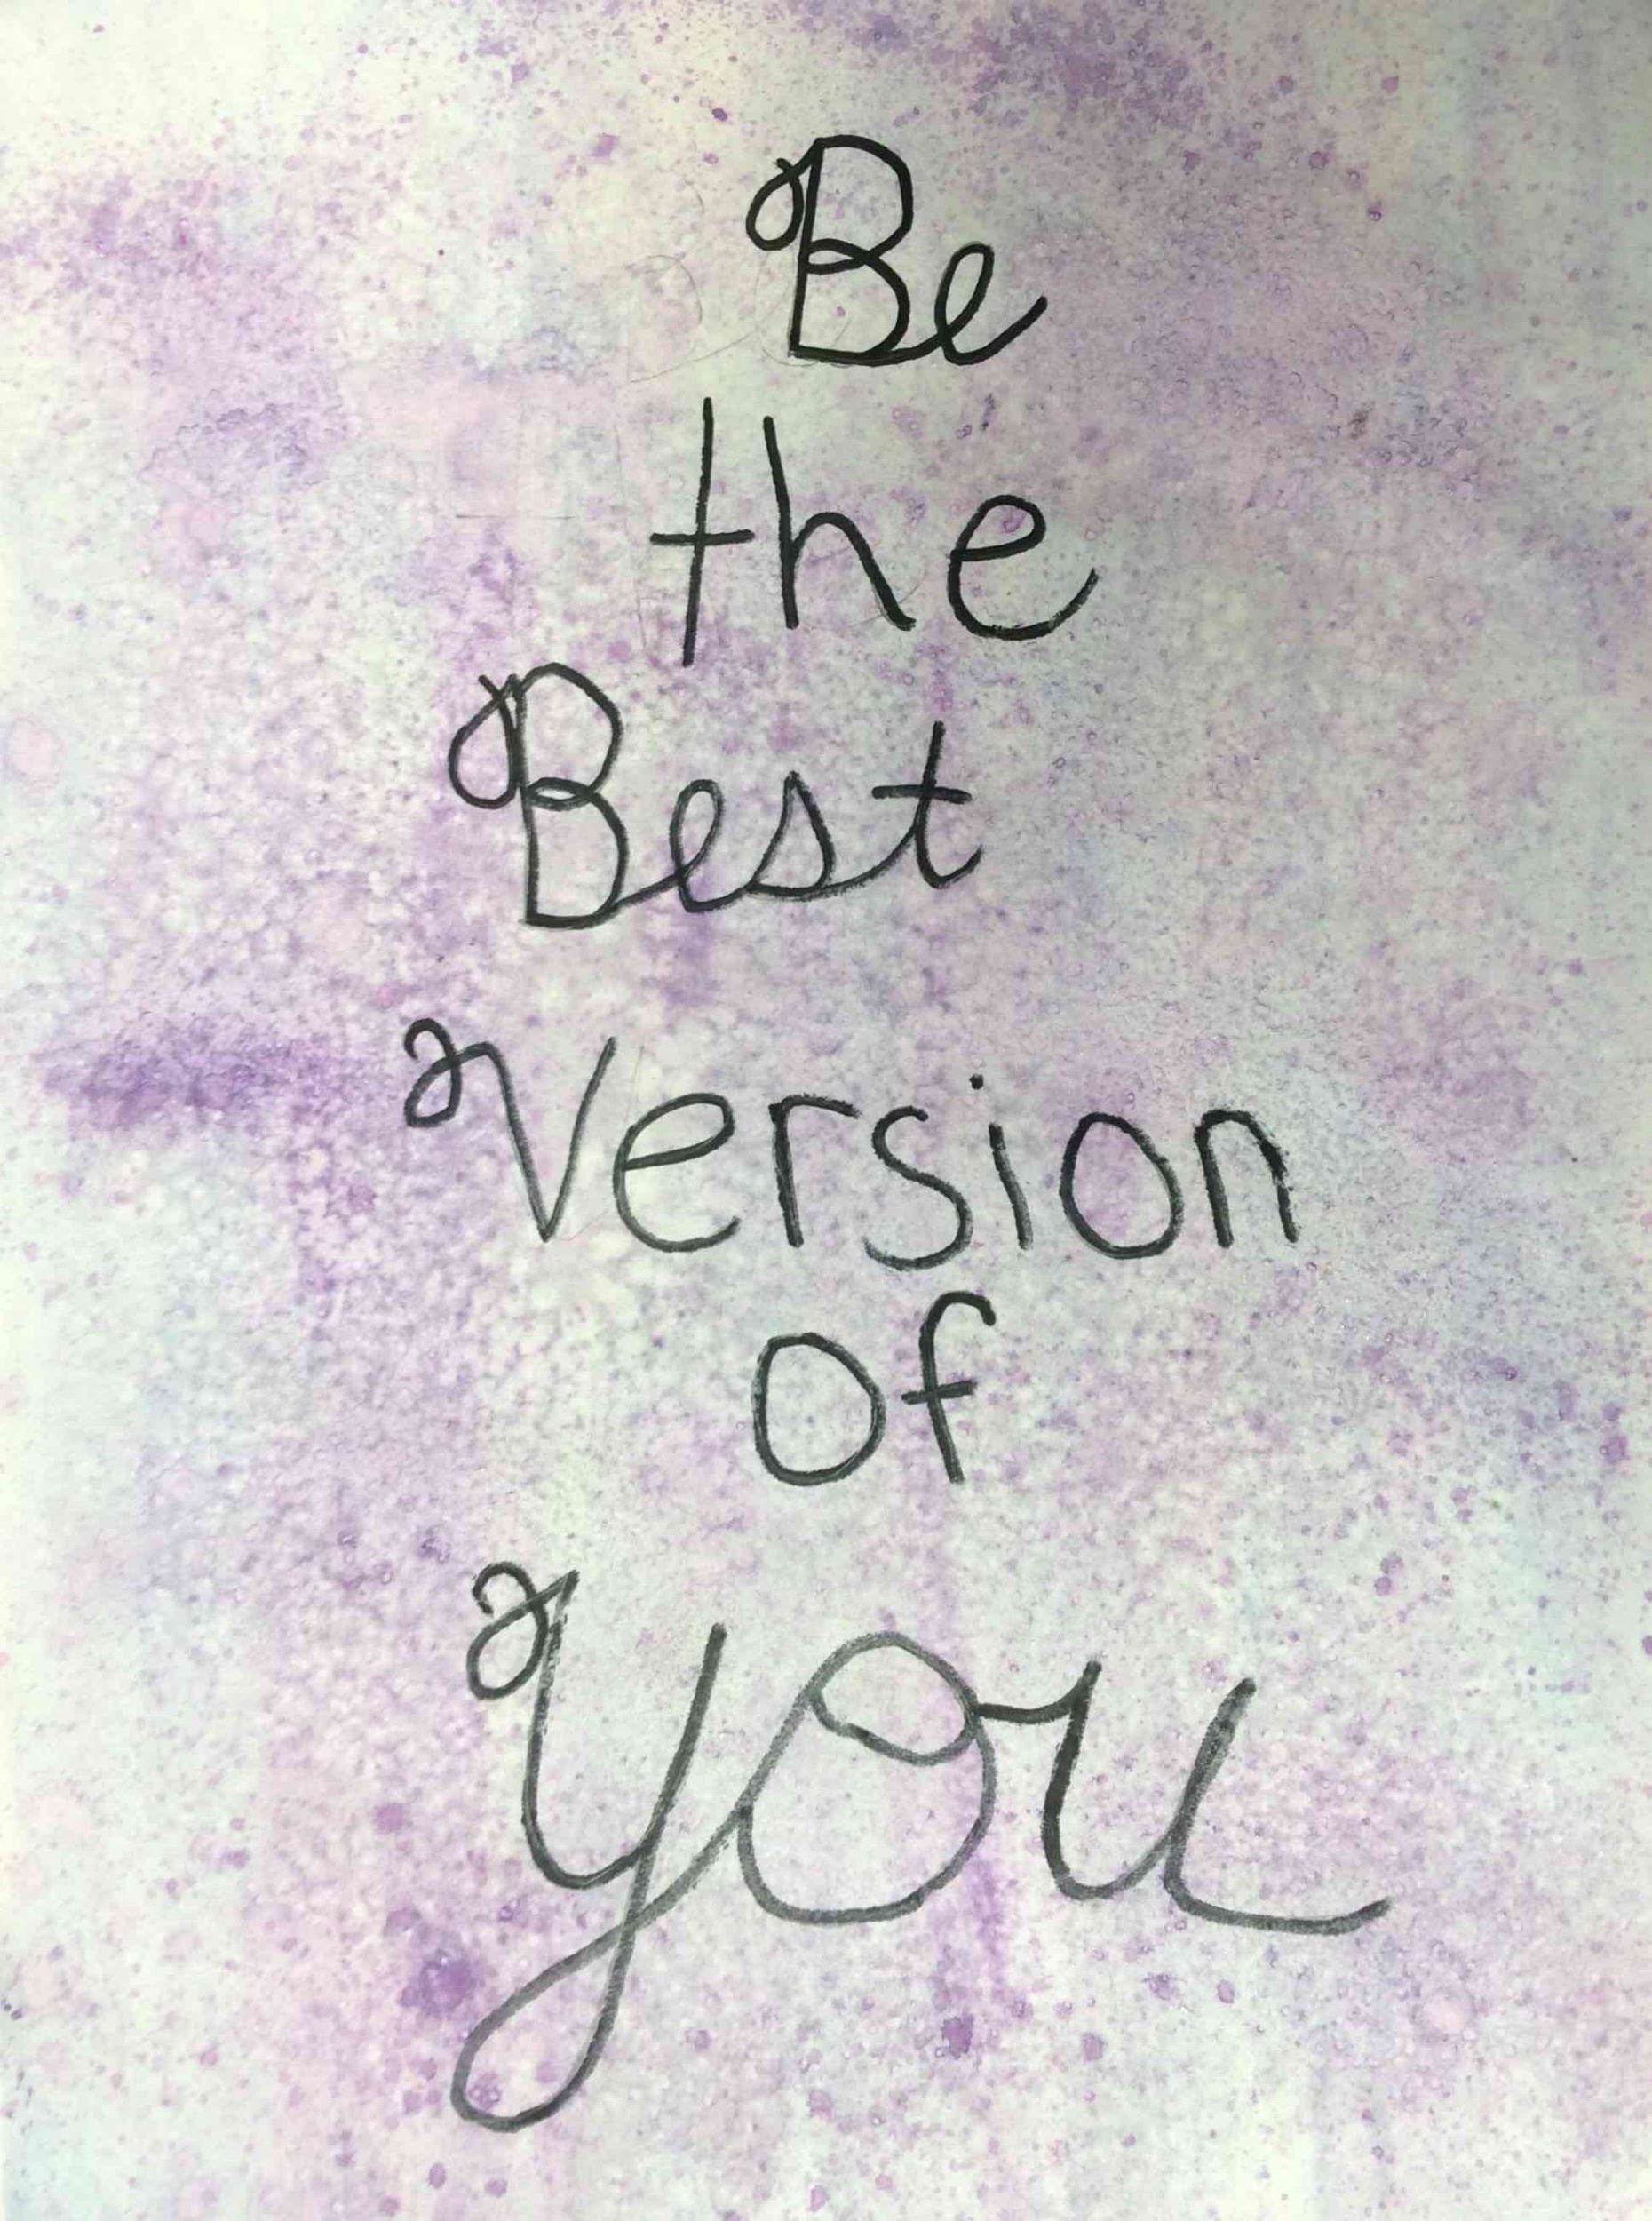 Be
the
Best
Version
of
you